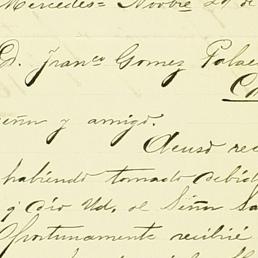 Mercedes= Novbre 29 de
D. Franco Gomez Palac
Señor y amigo.
Acuso rec
habiendo tomado debid
q dió Ud. al Señor Sa
Oportunamente recibiré